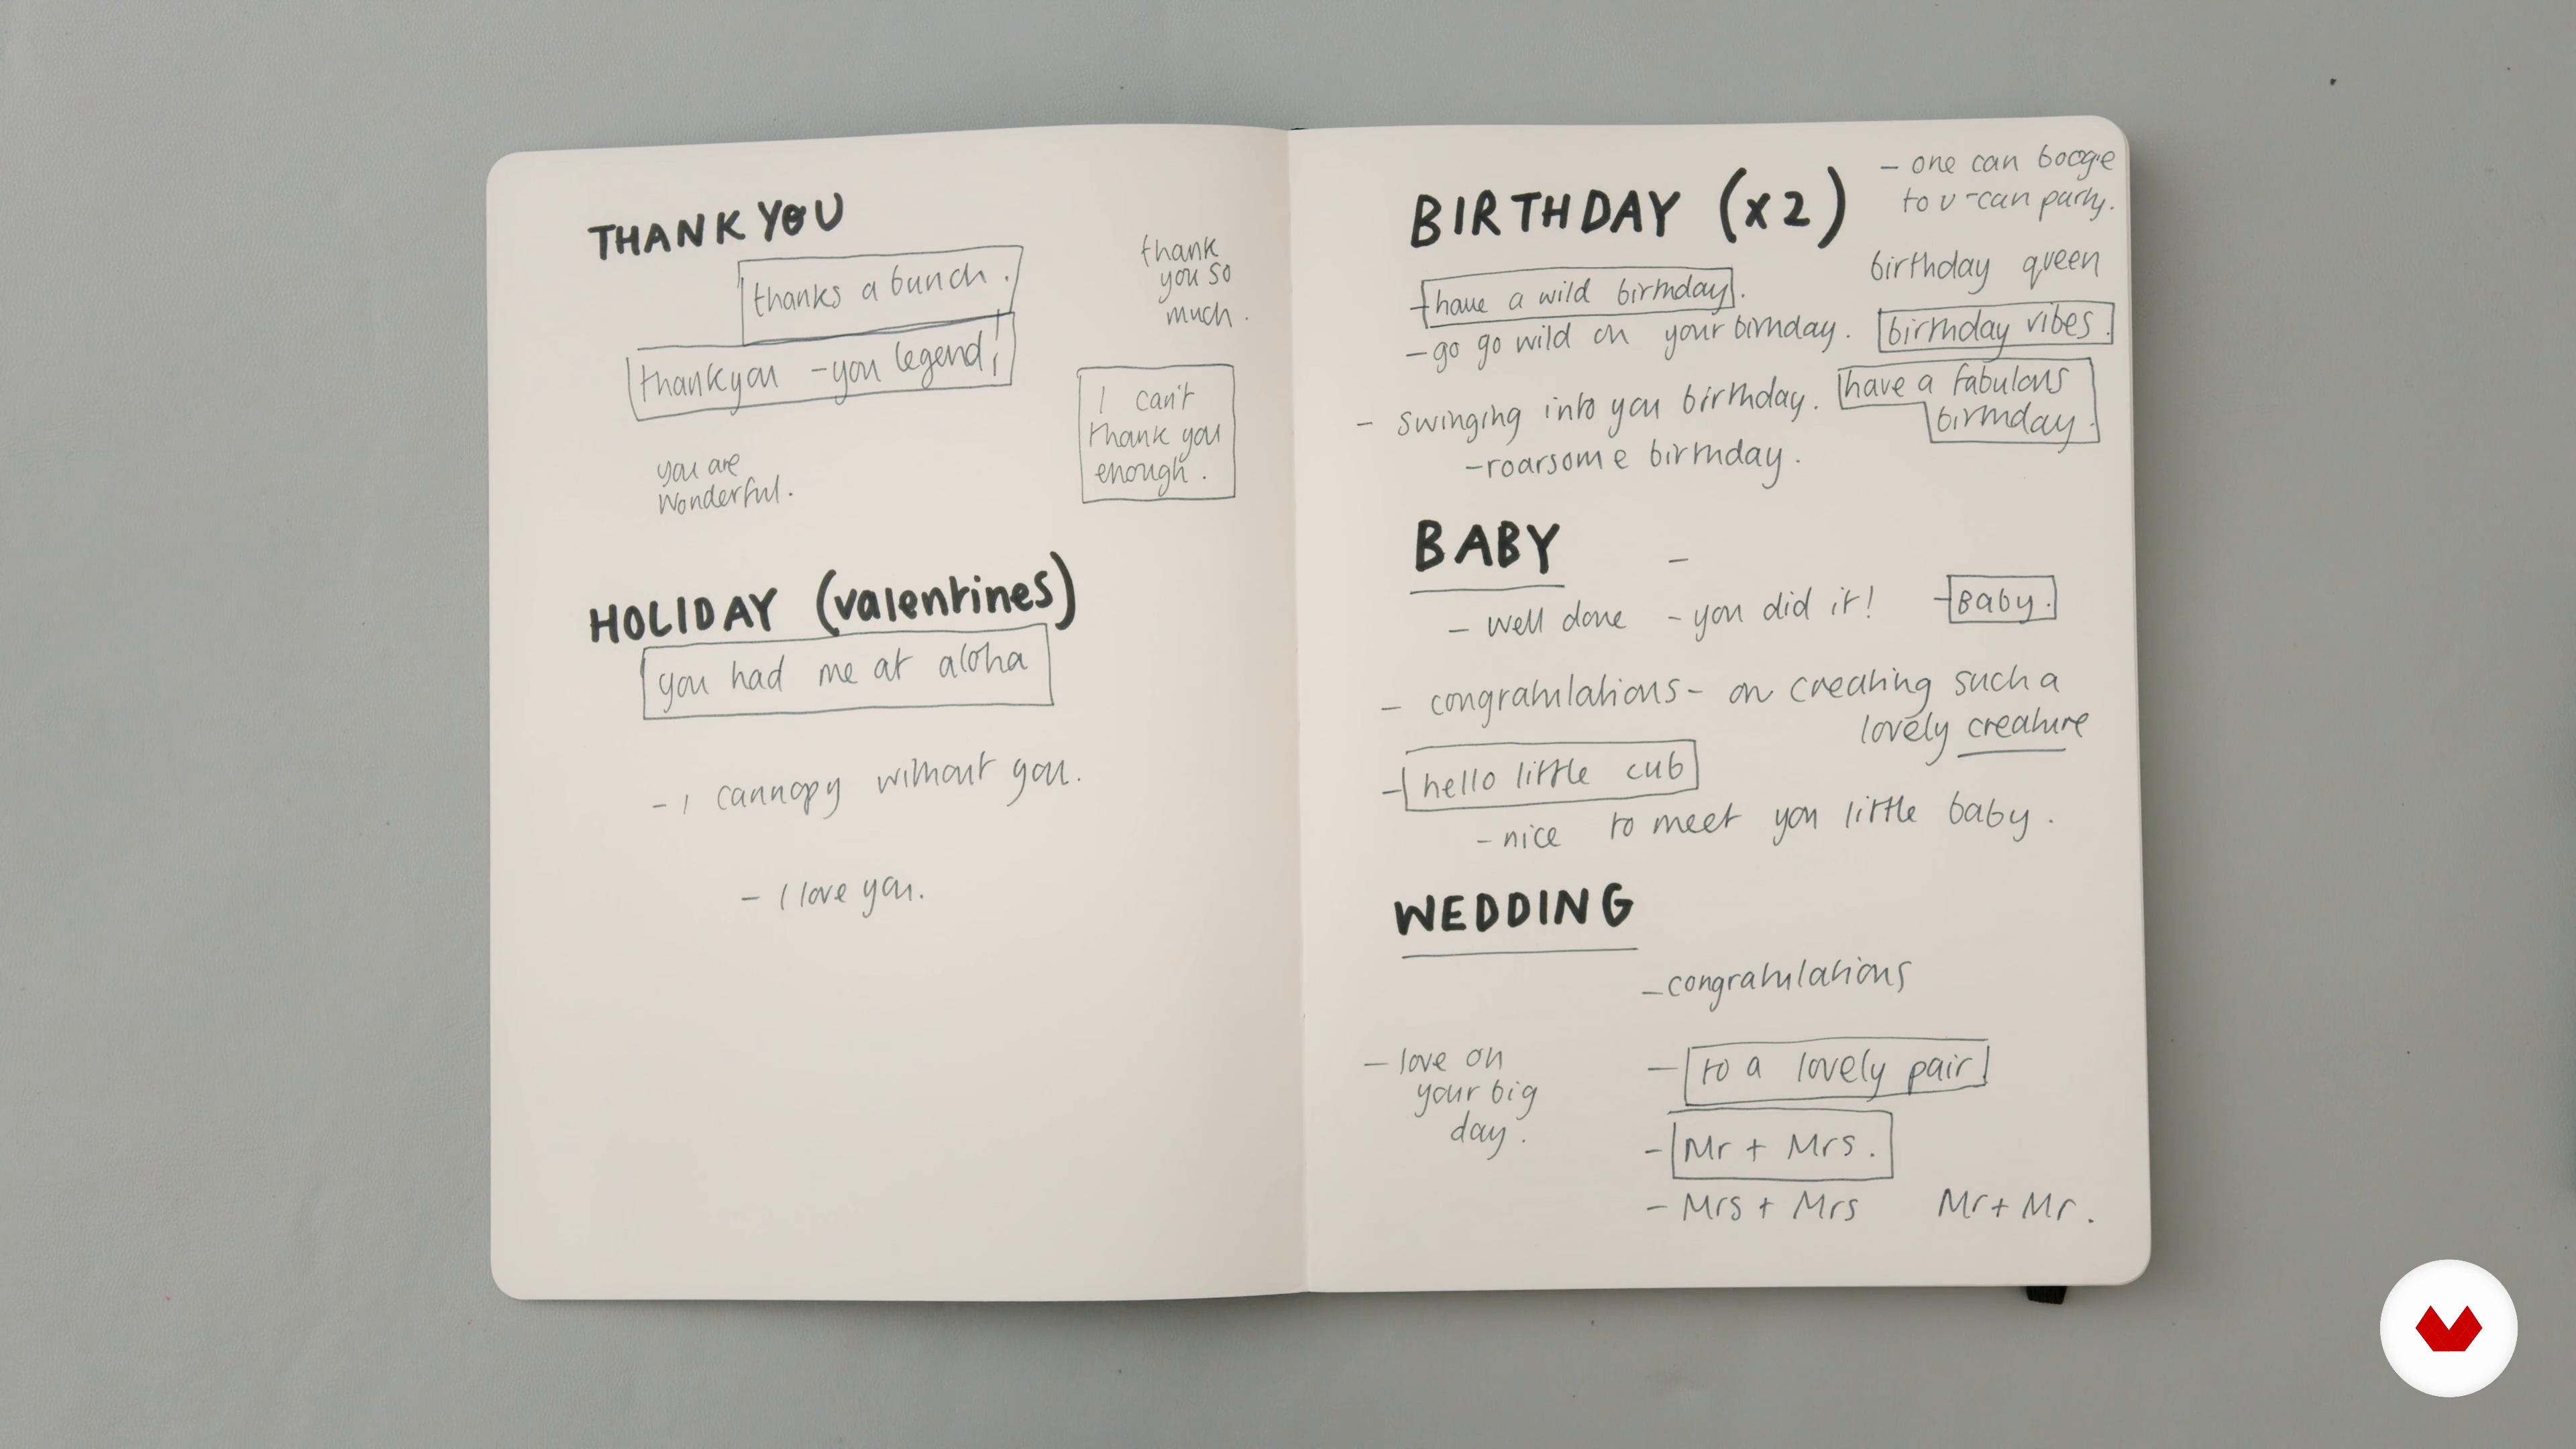 THANK YOU
thanks a bunch.
thankyou - you legend!
thank
you so
much.
I can't
thank you
enough.
you are
wonderful.
HOLIDAY (valentines)
you had me at aloha
- I cannopy without you.
- I love you.
BIRTHDAY (x2)
- one can boogie
to u-can party.
birthday queen
- have a wild birthday.
birthday vibes.
- go go wild on your birthday.
have a fabulous
birthday.
- swinging into you birthday.
- roarsome birthday.
BABY
-
- well done - you did it!
- Baby.
- congratulations - on creating such a
lovely creature
- hello little cub
- nice to meet you little baby.
WEDDING
- congratulations
- love on
your big
day.
- to a lovely pair
- Mr + Mrs.
- Mrs + Mrs Mr + Mr.